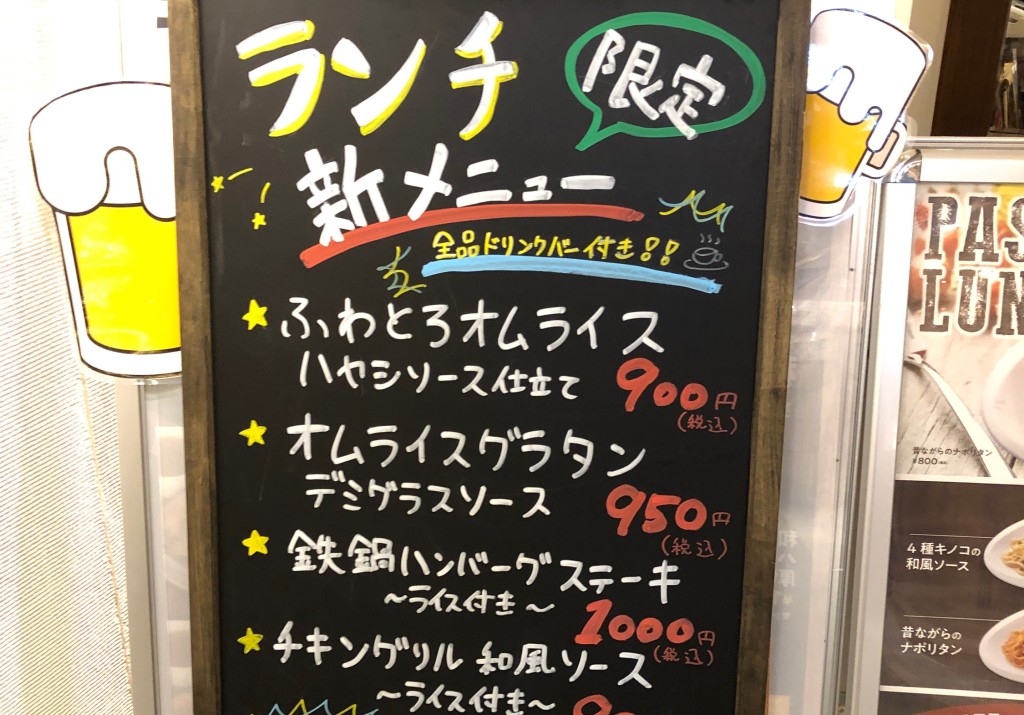 ランチ
限定
新メニュー
全品ドリンクバー付き!!
ふわとろオムライス
ハヤシソース仕立て
900円
(税込)
オムライスグラタン
デミグラスソース
950円
(税込)
鉄鍋ハンバーグステーキ
~ライス付き~
1000円
(税込)
チキングリル 和風ソース
~ライス付き~
PAS
LUN
昔ながらのナポリタン
¥800
4種キノコの
和風ソース
昔ながらの
ナポリタン